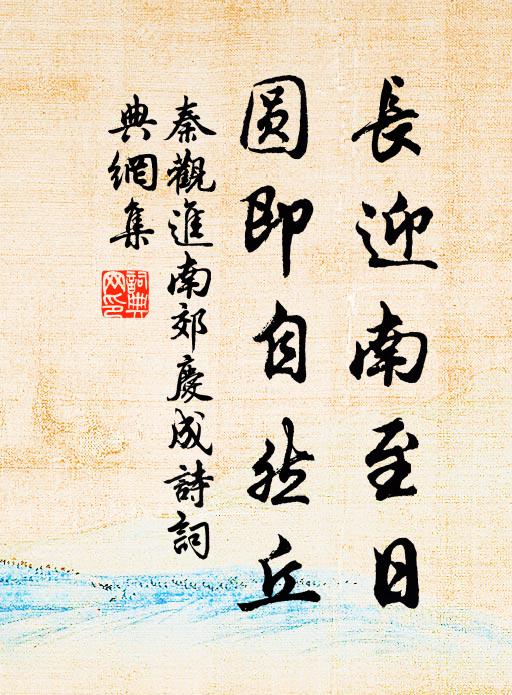 長迎南至日
圓即自然丘
秦觀進南郊慶成詩詞
典網集
詞典網印